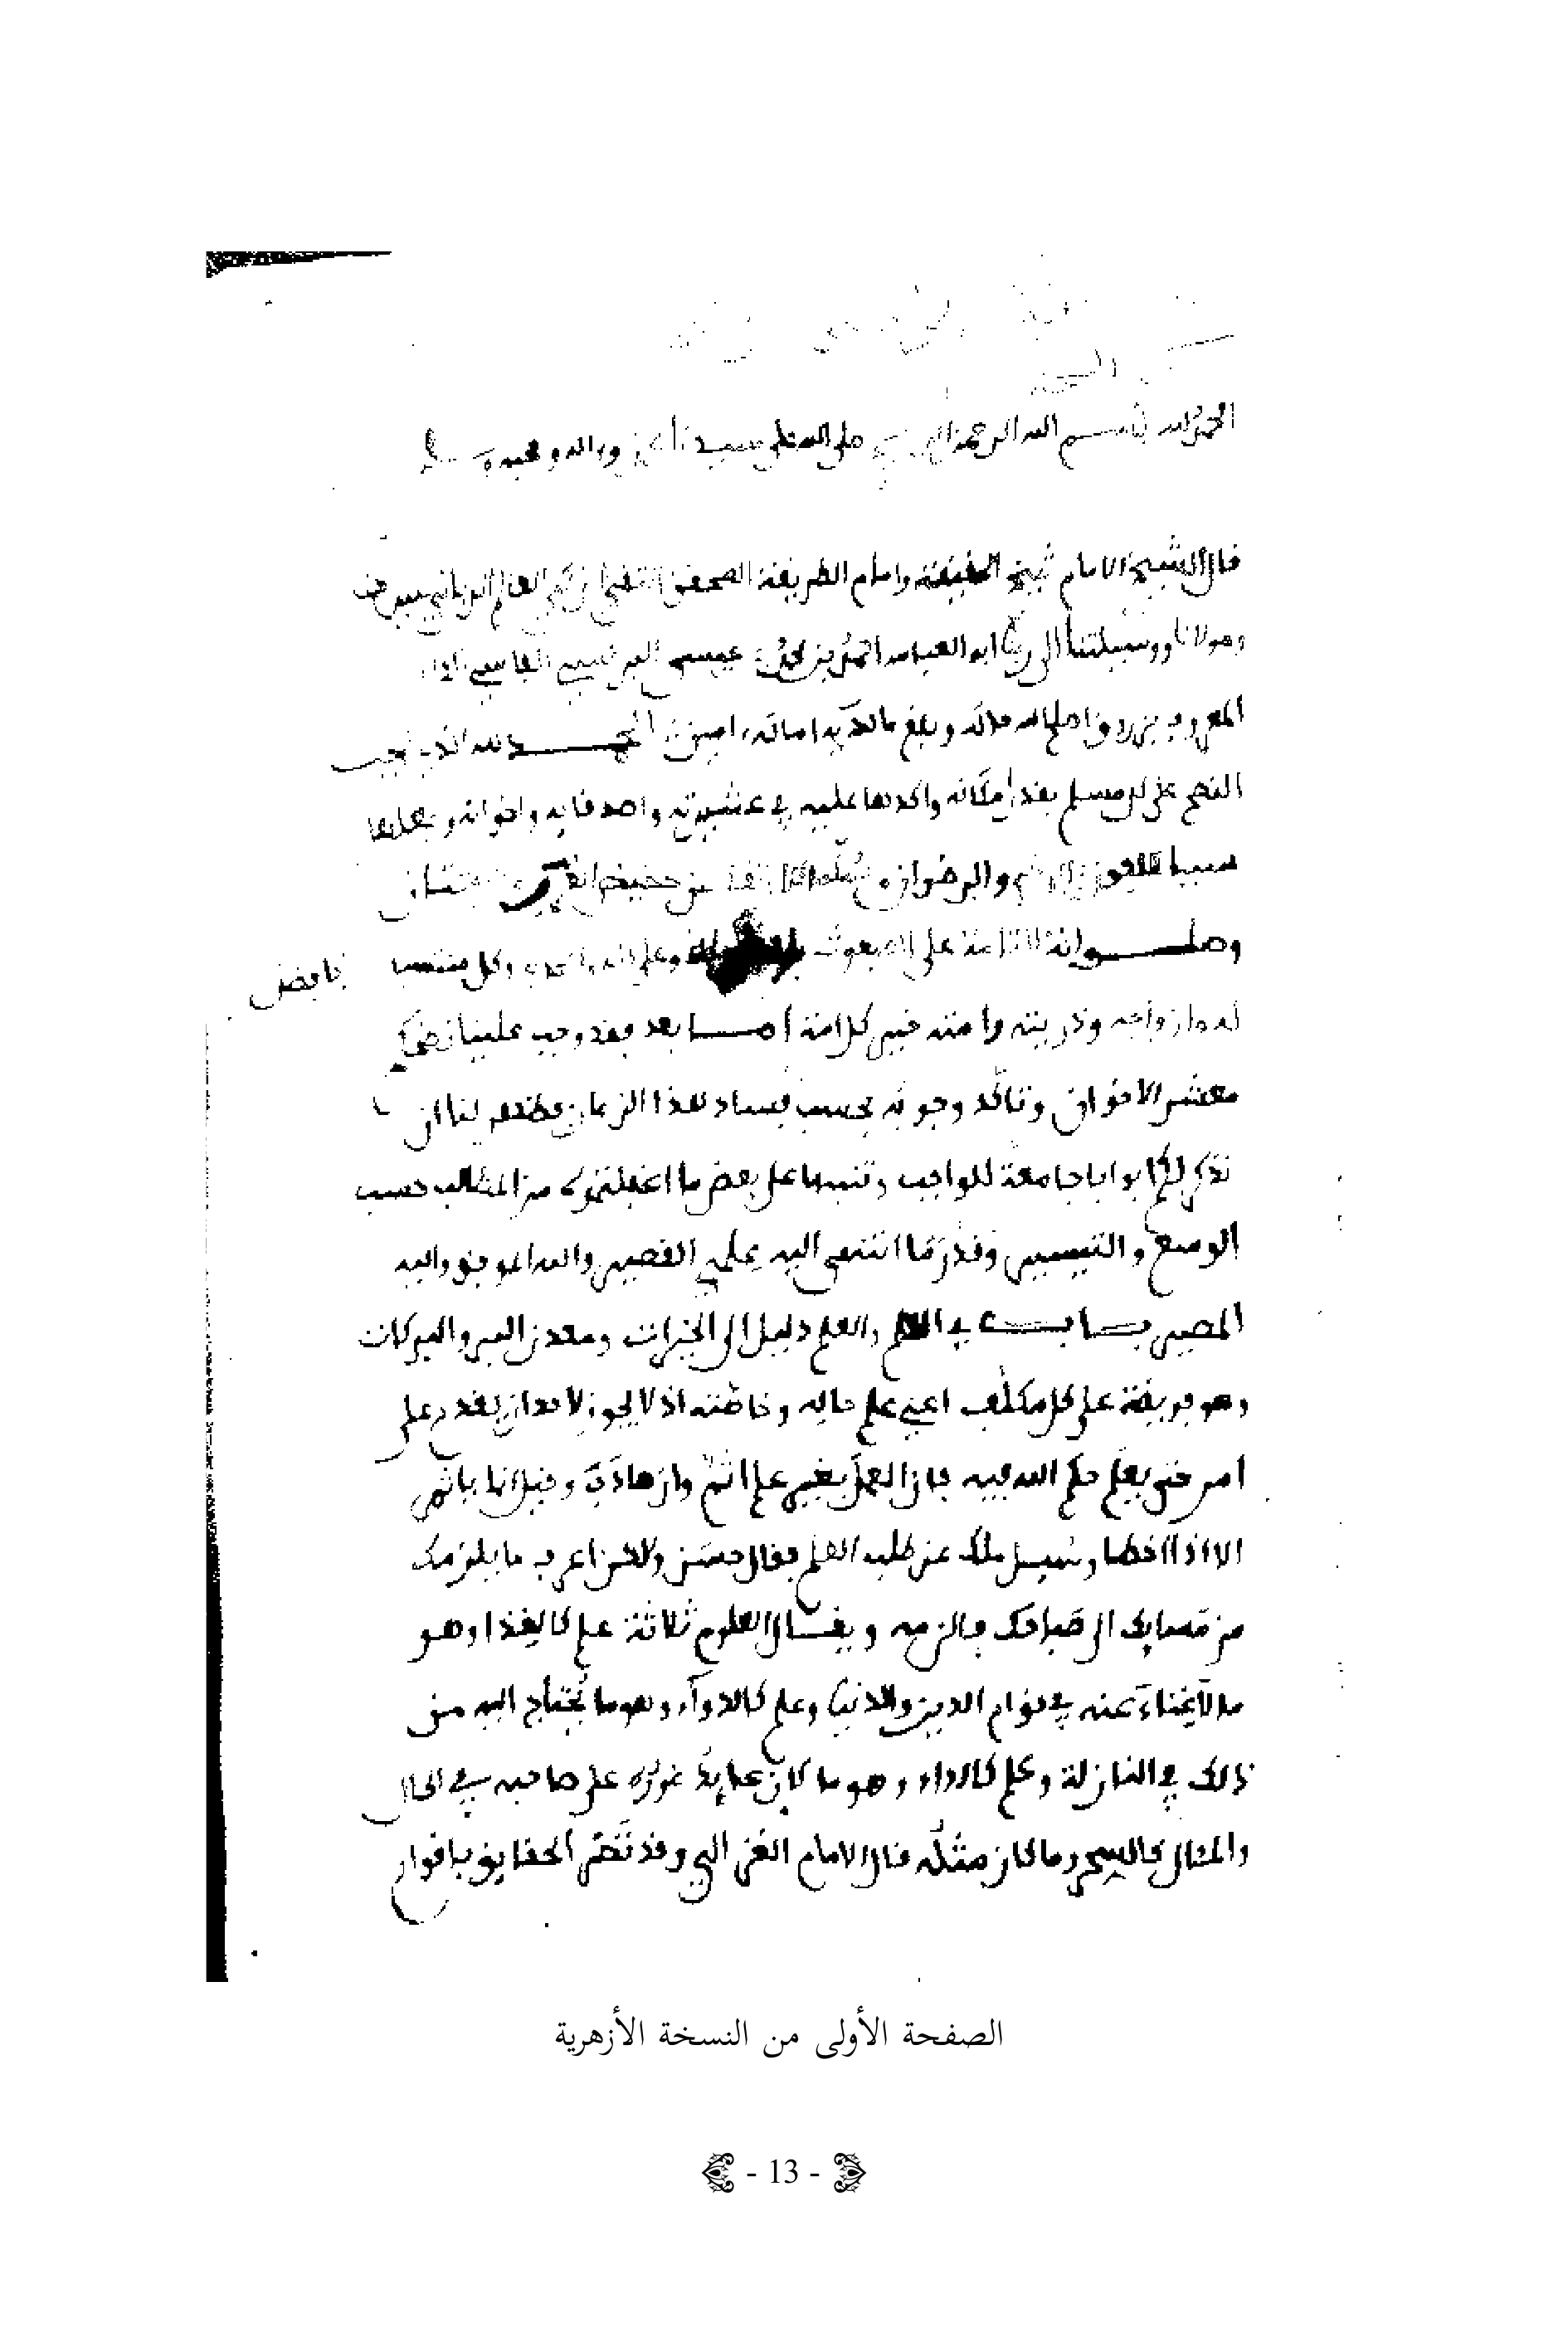 الحمد لله بسم الله الرحمن صلى الله على سيدنا وءاله وصحبه
قال الشيخ الامام شيخ الحقيقة وامام الطريقة المحقق العالم الرباني سيدنا
ومولانا ووسيلتنا الى ربنا ابو العباس احمد بن محمد بن عيسى البرنسي الفاسي
المعروف بزروق اصلح الله حاله وبلغ ءاماله امين الحمد لله الذي اوجب
النصح على كل مسلم بقدر امكانه واكدها عليه في عشيرته واصدقايه واخوانه وجعلها
سببا للفوز والرضوان من حضيض
وصلواته التامة على المبعوث وعلى اله وكل منتسب
له وازواجه وذريته وامته خير كل امة اما بعد فقد وجب علينا نصحكم
معشر الاخوان وتاكد وجوبه بحسب فساد هذا الزمان فظهر لنا ان
نذكر لكم ابوابا جامعة للواجب وتنبيها على بعض ما اغفلتموه من المطالب حسب
الوسع والتيسير وقدر ما انتهى اليه علمي القصير والله الموفق واليه
المصير باب في العلم والعلم دليل الى الخيرات ومعدن البر والبركات
وهو فريضة على كل مكلف اعني علم حاله وخاصته اذ لا يجوز لاحد ان يقدم على
امر حتى يعلم حكم الله فيه فان العمل بغير علم اثم وان صادف وقيل انما ياثم
الا اذا اخطا وسيل ملك عن طلب العلم فقال حسن ولاكن اعرف ما يلزمك
من مسايك الى صباحك فالزمه ويقال العلوم ثلاثة علم كالغذا وهو
ما لا غناء عنه في قوام الدين والدنيا وعلم كالدواء وهو ما يحتاج اليه من
ذلك في النازلة وعلم كالداء وهو ما كان عايد ضرره على صاحبه في الحال
والمثال كالسحر وما كان مثله قال الامام الغزالي وقد تضر الحقايق باقوام
الصفحة الأولى من النسخة الأزهرية
- 13 -